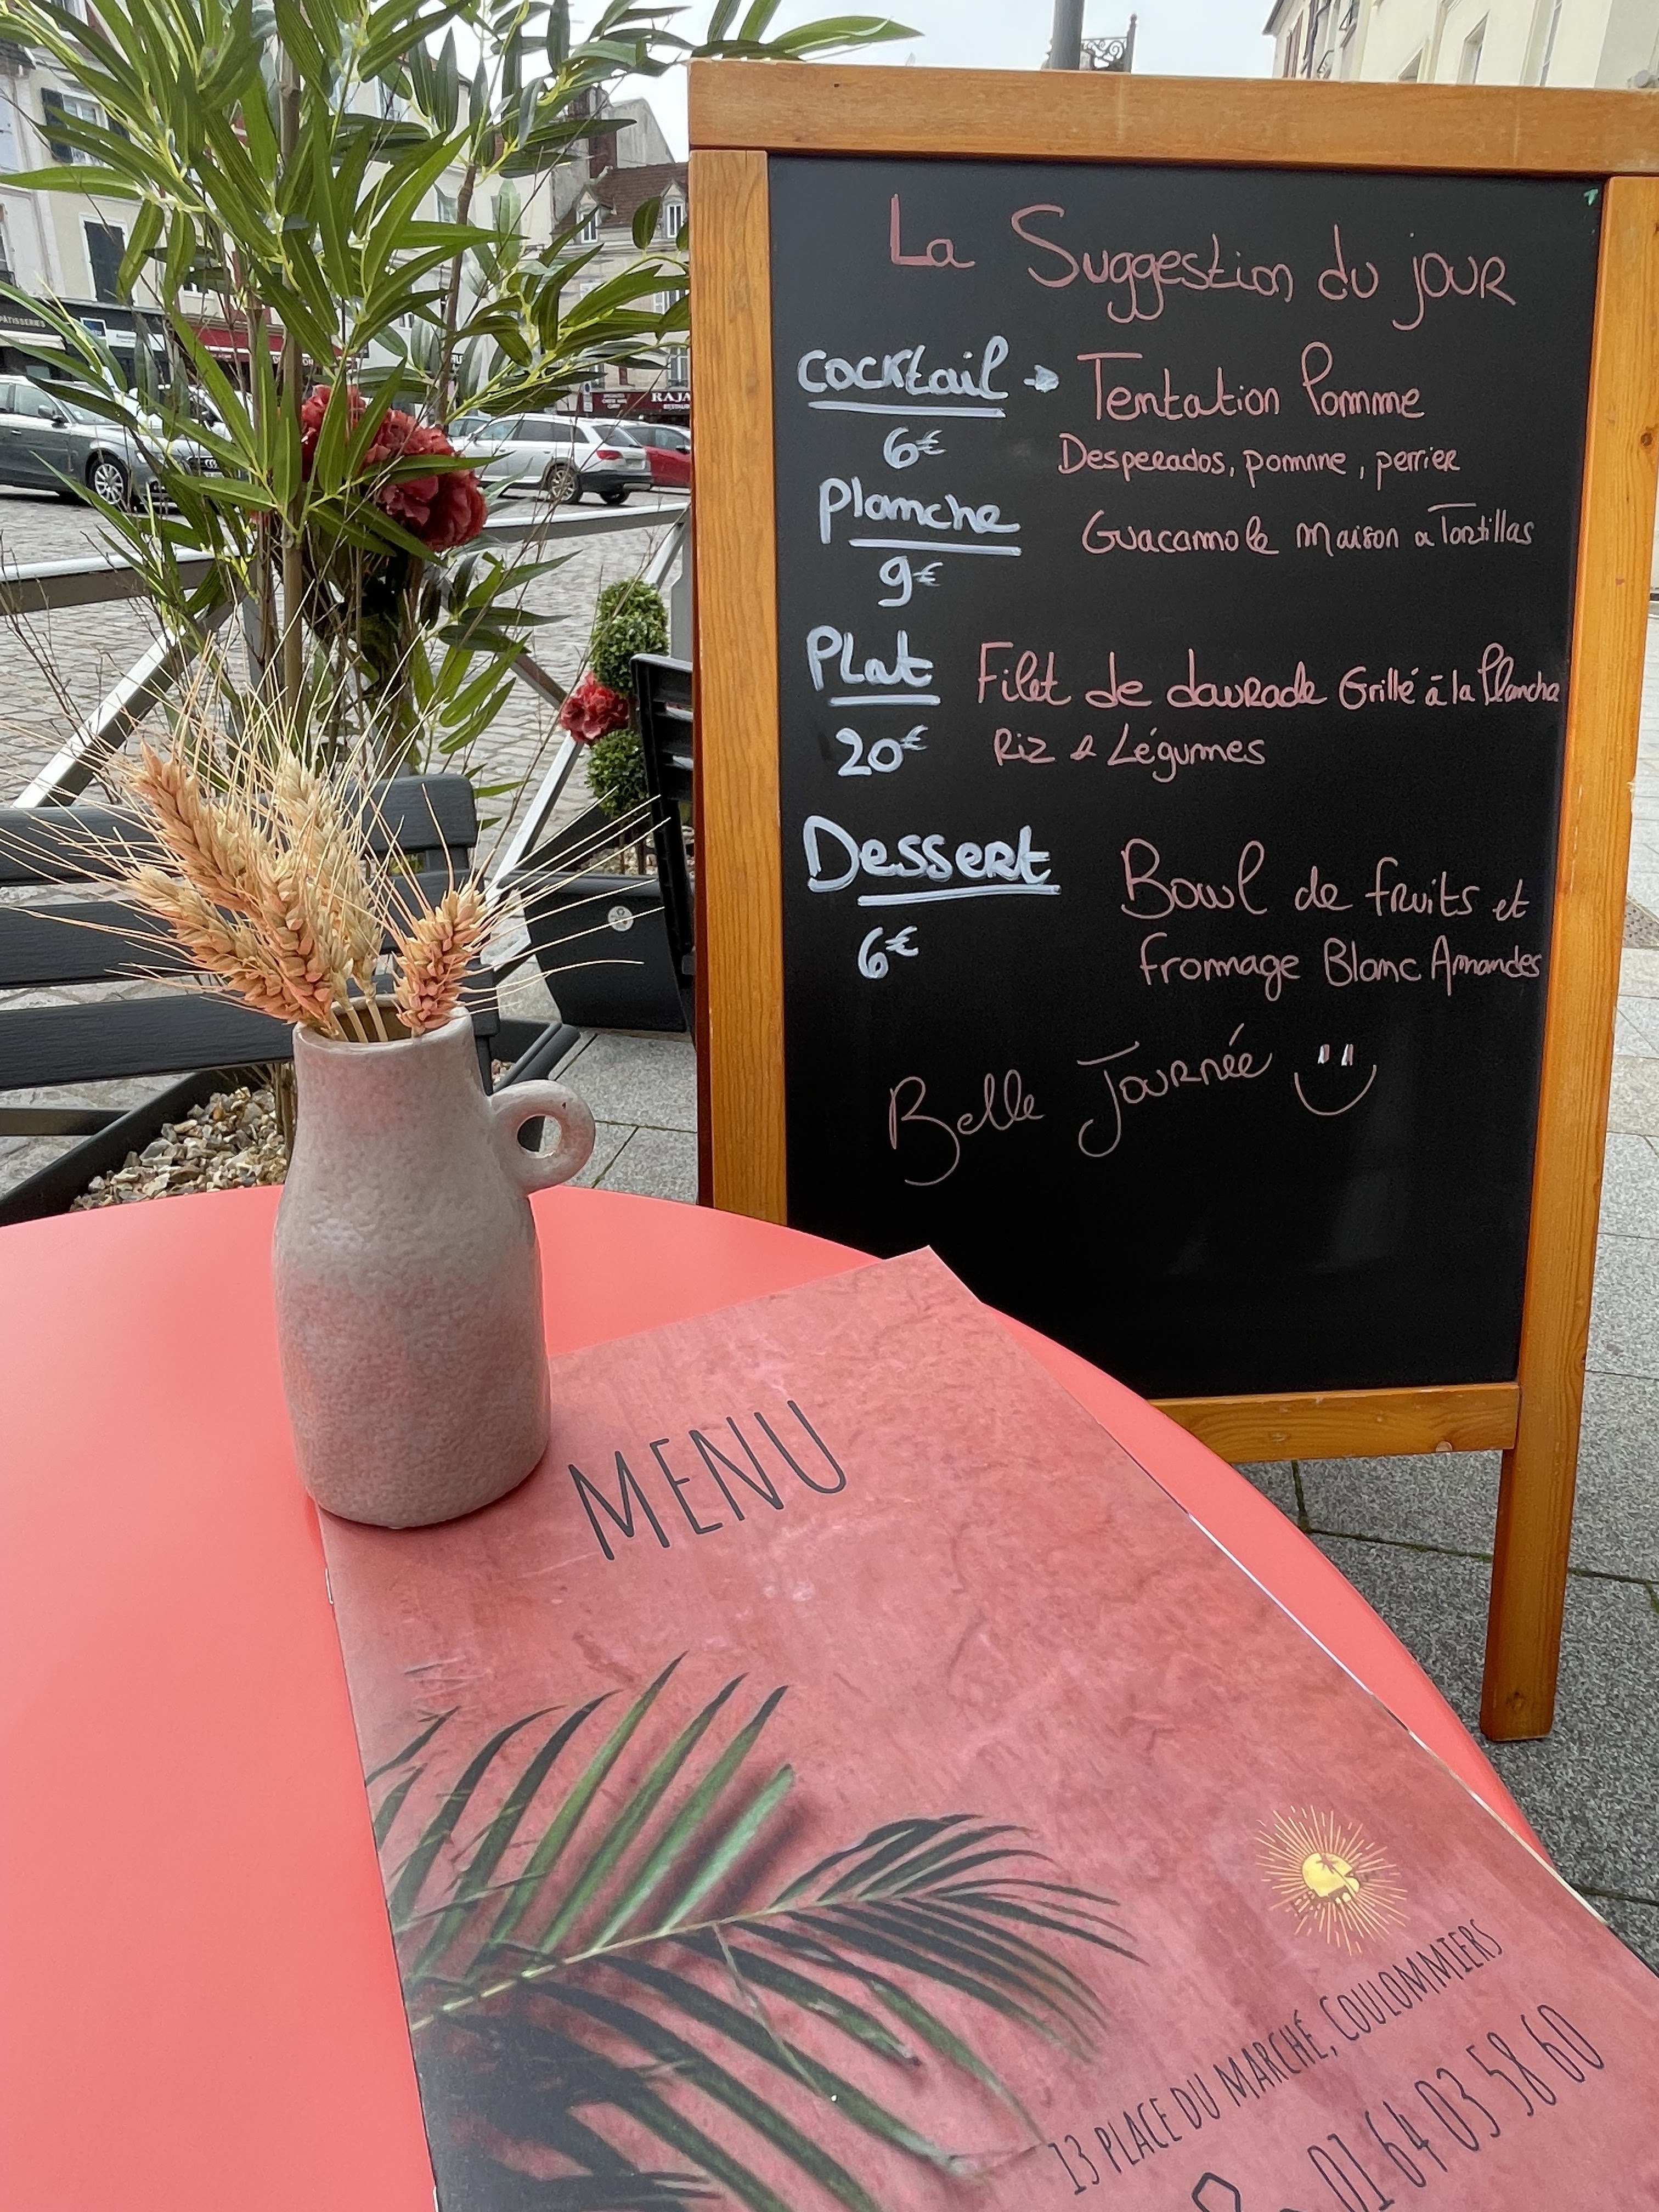 La Suggestion du jour
cocktail → Tentation Pomme
6€ Desperados, pomme, perrier
Planche Guacamole maison & Tortillas
9€
PLat Filet de daurade Grillé à la Plancha
20€ Riz & Légumes
Dessert Bowl de fruits et
6€ fromage Blanc Amandes
Belle Journée
MENU
13 PLACE DU MARCHÉ, COULOMMIERS
01 64 03 58 60
PÂTISSERIES
RAJA